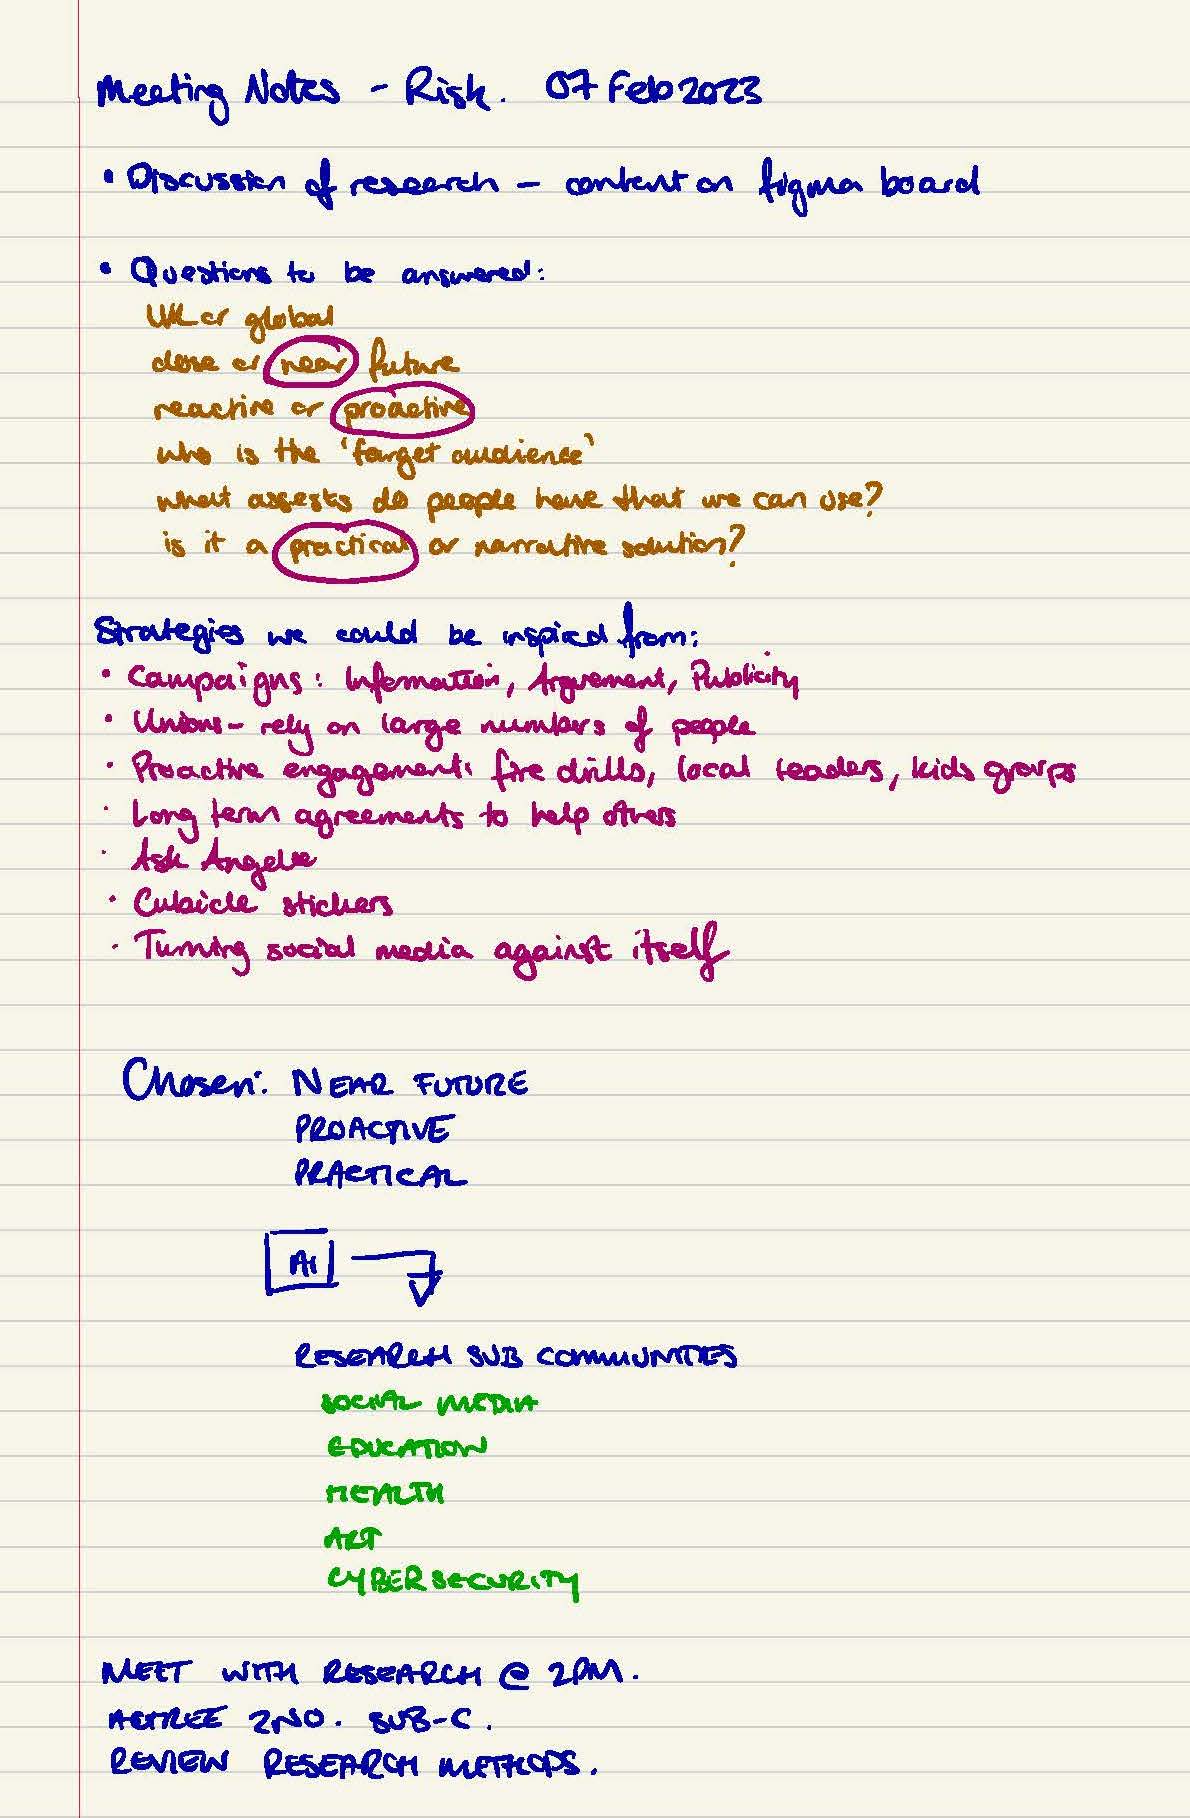 Meeting Notes - Risk. 07 Feb 2023
• Discussion of research - content on figma board
• Questions to be answered:
UK or global
close or near future
reactive or proactive
who is the 'target audience'
what assests do people have that we can use?
is it a practical or narrative solution?
Strategies we could be inspired from:
• Campaigns: Information, Arguement, Publicity
• Unions - rely on large numbers of people
• Proactive engagement: fire drills, local leaders, kids groups
• Long term agreements to help others
• Ask Angela
• Cubicle stickers
• Turning social media against itself
Chosen: NEAR FUTURE
PROACTIVE
PRACTICAL
AI
RESEARCH SUB COMMUNITIES
SOCIAL MEDIA
EDUCATION
HEALTH
ART
CYBERSECURITY
MEET WITH RESEARCH @ 2PM.
AGREE 2NO. SUB-C.
REVIEW RESEARCH METHODS.